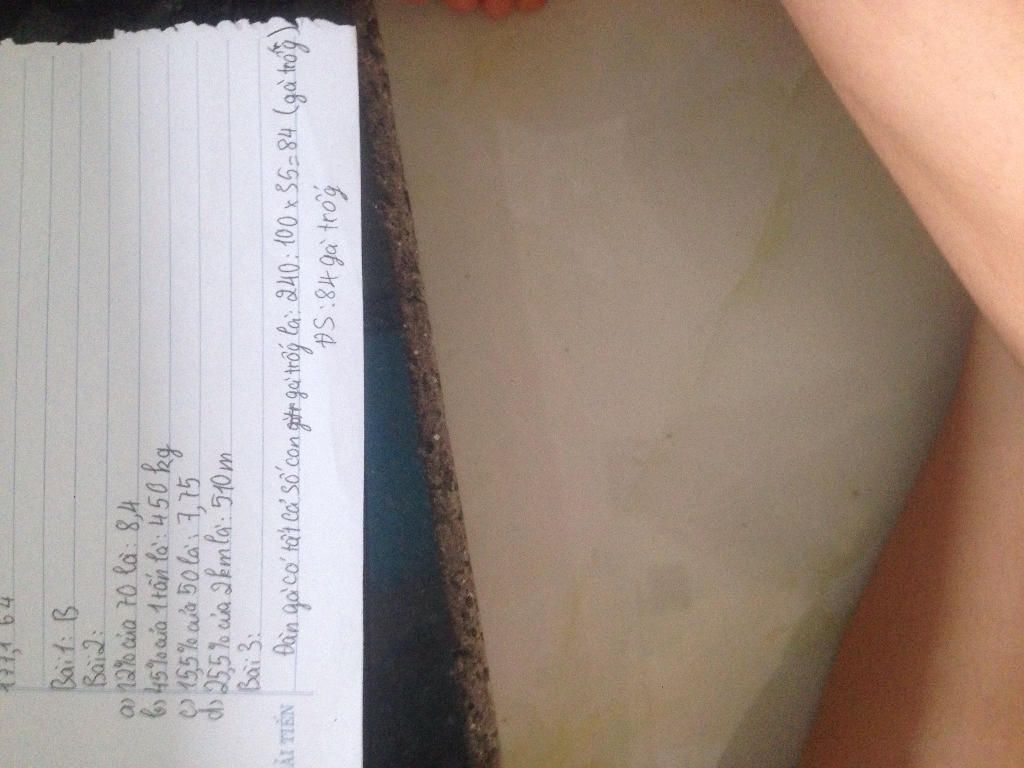 177,1 64
Bài 1: B
Bài 2:
a) 12% của 70 là: 8,4
b) 45% của 1 tấn là: 450 kg
c) 15,5% của 50 là: 7,75
d) 25,5% của 2km là: 510m
Bài 3:
Đàn gà có tất cả số con gà trống là: 240: 100 x 35 = 84 (gà trống)
ĐS: 84 gà trống
ẢI TIẾN